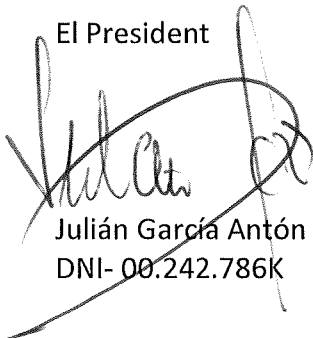 El President
Julián García Antón
DNI- 00.242.786K